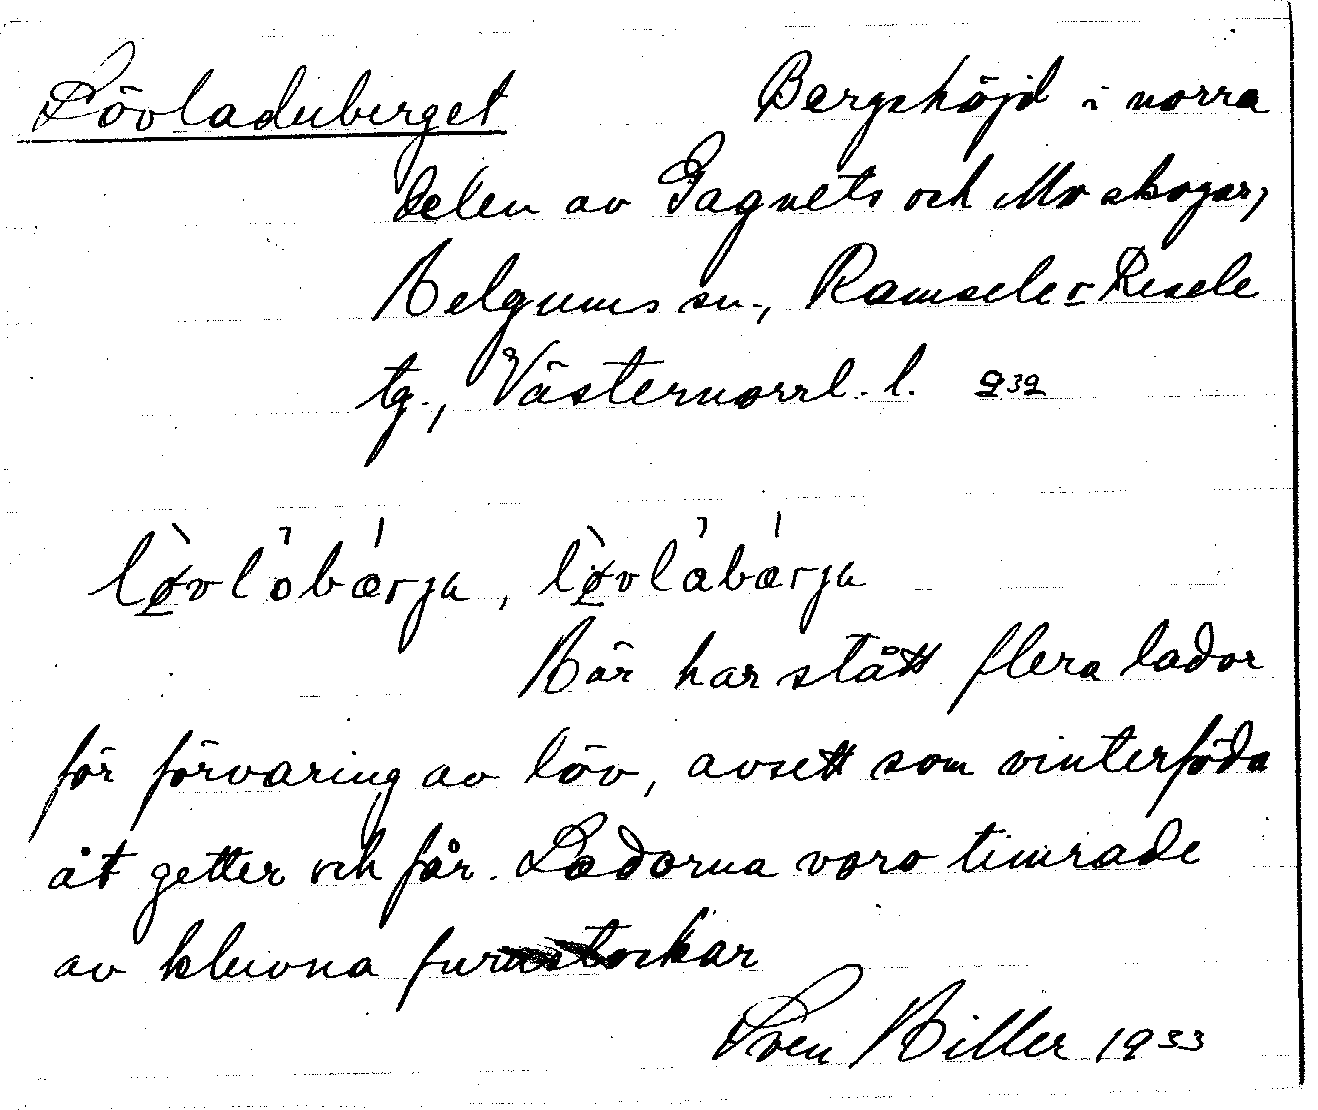 Lövladuberget Bergshöjd i norra
delen av Gagnets och Mo skogar,
Helgums sn., Ramsele o. Resele
tg., Västernorrl. l. 939
Här har stått flera lador
för förvaring av löv, avsett som vinterföda
åt getter och får. Ladorna voro timrade
av kluvna furustockar
Sven Hiller 1933